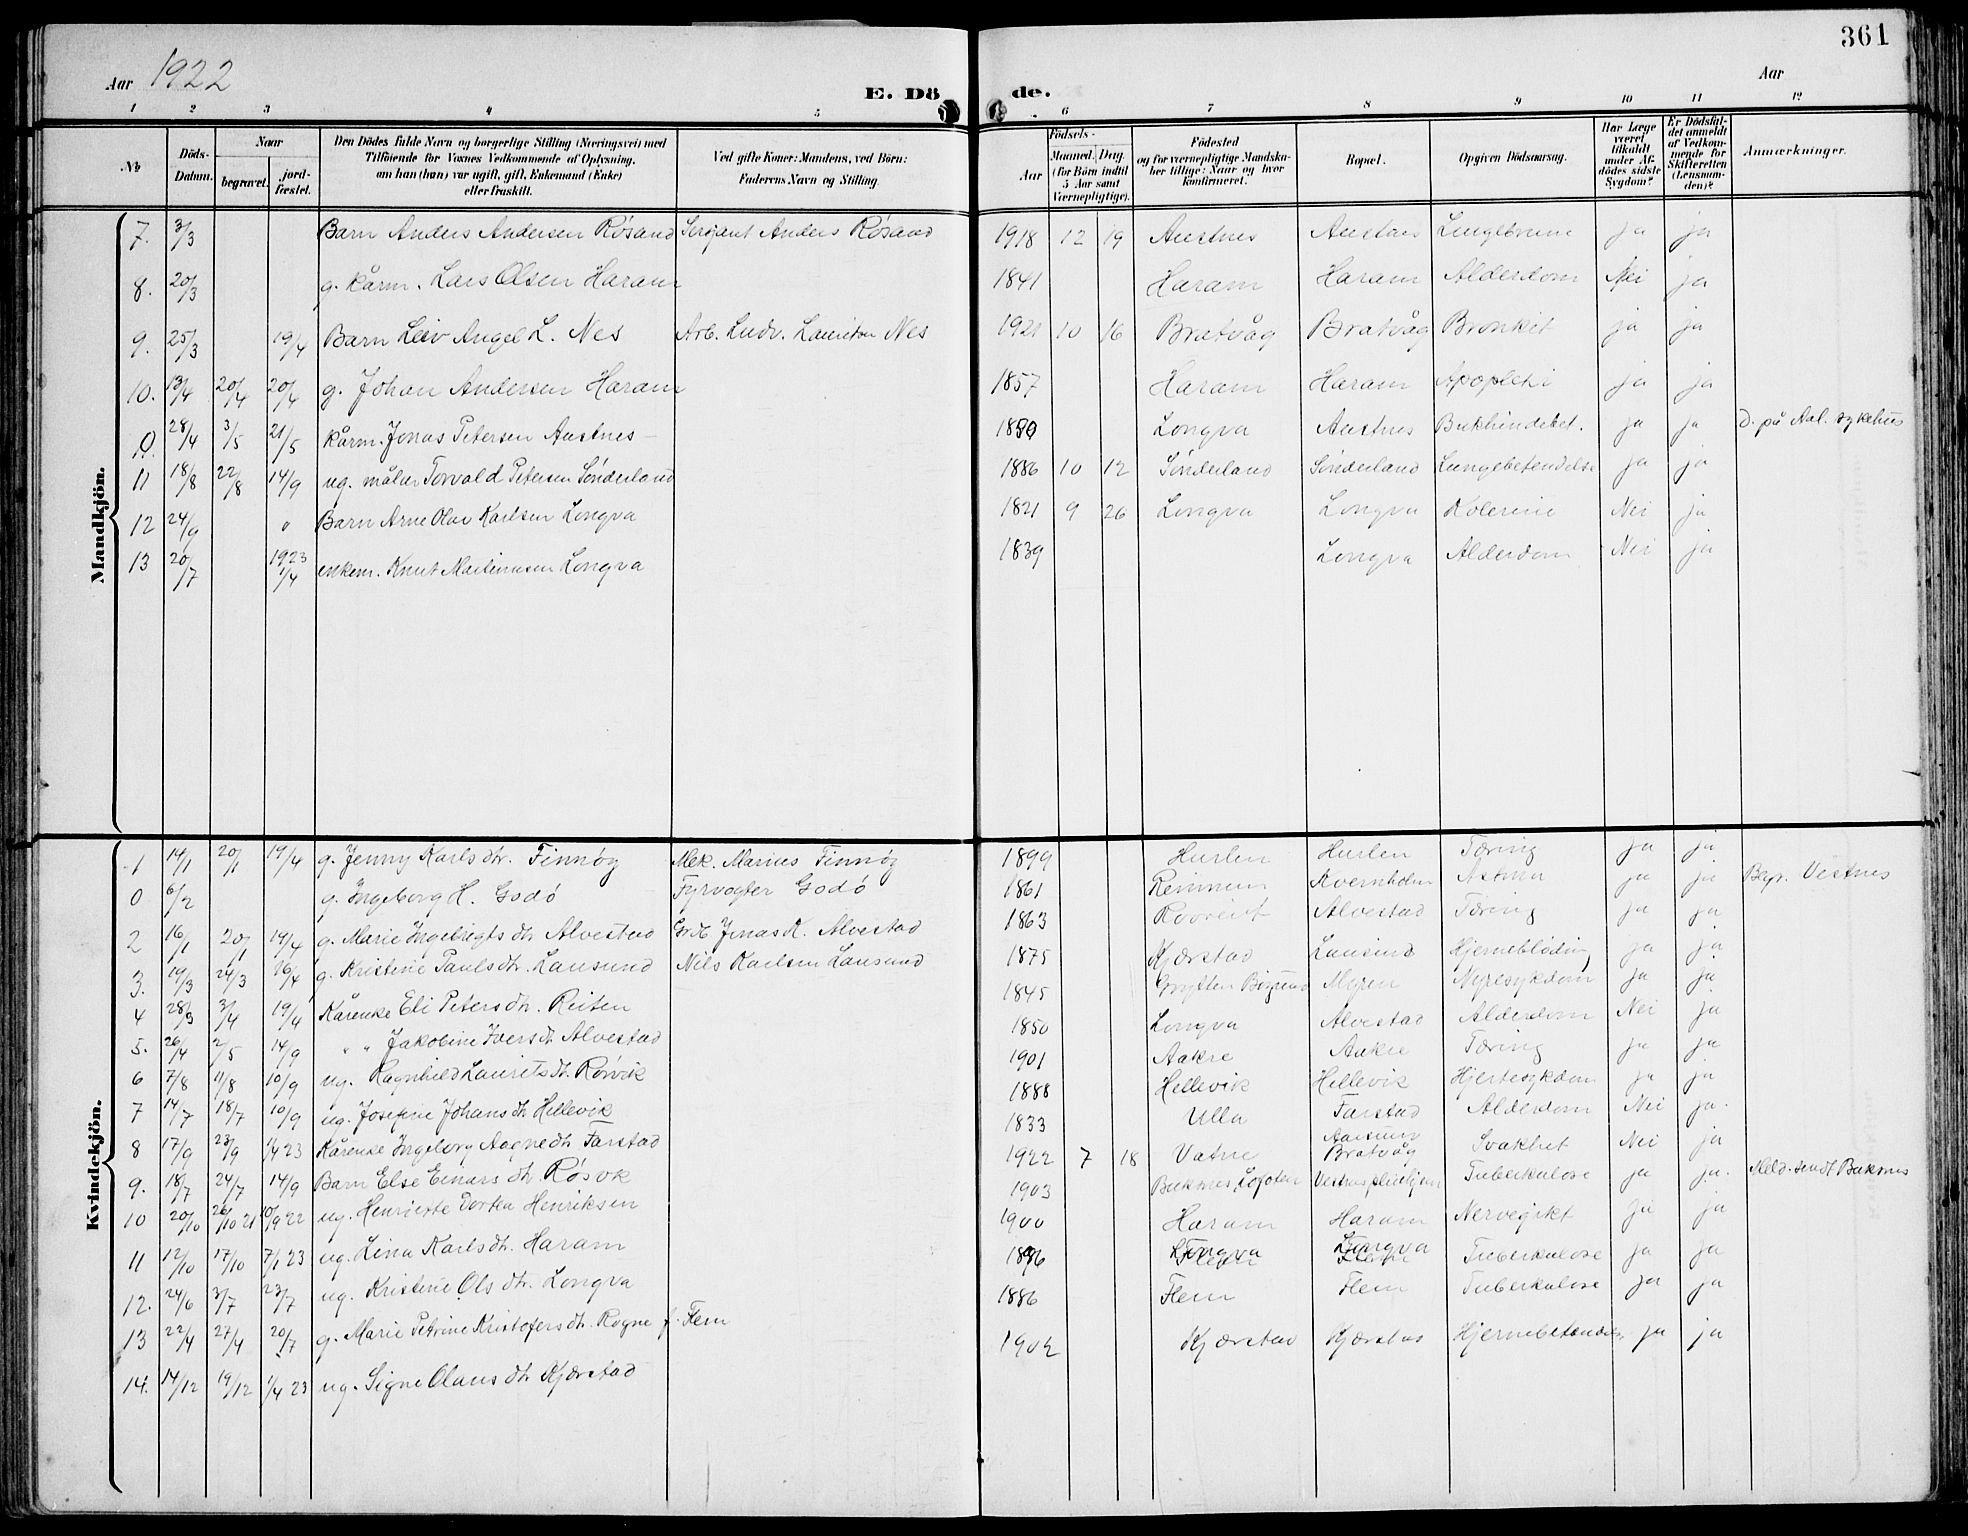 361
Aar 1922
E. Dö de.
Aar
1 2 3 4 5 6 7 8 9 10 11 12
No
Döds-Datum.
Naar
begravet.
jord-fæstet.
Den Dödes fulde Navn og borgerlige Stilling (Næringsvei) med
Tilföiende for Voxnes Vedkommende af Oplysning,
om han (hun) var ugift, gift, Enkemand (Enke)
eller fraskilt.
Ved gifte Koner: Mandens, ved Börn:
Faderens Navn og Stilling.
Födsels-
Aar
Maaned. Dag.
(for Börn indtil
5 Aar samt
Værnepligtige).
Födested
og for værnepligtige Mandska-
ber tillige: Naar og hvor
konfirmeret.
Bopæl.
Opgiven Dödsaarsag.
Har Læge
været
tilkaldt
under Af-
dödes sidste
Sygdom?
Er Dödsfal-
det anmeldt
af Vedkom-
mende for
Skifteretten
(Lensman-
den)?
Anmærkninger.
Mandkjön.
7. 3/3 Barn Anders Andersen Røsand Sersjant Anders Røsand 1918 12 19 Austnes Austnes ja ja
8. 20/3 g. kårm. Lars Olsen Haram 1841 Haram Haram Alderdom Nei ja
9. 25/3 19/4 Barn Leiv Angel L. Nes Arb. Ludv. Lauritsen Nes 1921 10 16 Bratvåg Bratvåg Bronkit ja ja
10. 13/4 20/4 20/4 g. Johan Andersen Haram 1857 Haram Haram Apopleksi ja ja
0. 28/4 3/5 21/5 kårm. Jonas Petersen Austnes Longva Austnes Bukhindebet. ja ja D. på Aal. sykehus
11 18/8 22/8 14/9 ug. maler Torvald Petersen Sønderland 1886 10 12 Sønderland Sønderland Lungebetendelse ja ja
12 24/9 " Barn Arne Olav Karlsen Longva 1821 9 26 Longva Longva Kolerine Nei ja
13 20/7 1923 1/4 enkem. Knut Martinusen Longva 1839 Longva Alderdom Nei ja
Kvindekjön.
1 14/1 20/1 19/4 g. Jenny Karlsdtr. Finnøy Mek. Marius Finnøy 1899 Huslen Huslen Tæring ja ja
0 6/2 g. Ingeborg H. Godø Fyrvogter Godø 1861 Remmem Kvernholm Astma ja ja Begr. Vestnes
2 16/1 20/1 19/4 g. Marie Ingebrigts dtr Alvestad Grdb Jonas K. Alvestad 1863 Alvestad Tæring ja ja
3. 19/3 24/3 26/4 g. Kristine Pauls dtr. Lausund Nils Karlsen Lausund 1875 Kjærstad Lausund Hjerneblødning ja ja
4 28/3 3/4 19/4 Kårenke Eli Peters dtr. Reiten 1845 Grytten Myren Nyresykdom ja ja
5. 26/4 2/5 14/9 " " Jakobine Ivers dtr Alvestad 1850 Longva Alvestad Alderdom Nei ja
6 7/8 11/8 10/9 ug. Ragnhild Laurits dtr. Rørvik 1901 Aakre Aakre Tæring ja ja
7 14/7 18/7 10/9 ug. Josefine Johans dtr Hellevik 1888 Hellevik Hellevik Hjertesykdom ja ja
8 17/9 23/9 1/4 23 Kårenke Ingeborg Aagnedtr Farstad 1833 Ulla Farstad Alderdom Nei ja.
9. 18/7 24/7 14/9 Barn Else Einars dtr Røsvk 1922 7 18 Vatne Bratvåg Svakhet Nei ja
10 20/10 26/10 21 10/9 22 ug. Henriette Dortea Henriksen 1903 Buksnes, Lofoten Vestnes pleiehjem Tuberkulose ja ja. Meld. sendt Buksnes
11 12/10 17/10 7/1 23 ug. Lina Karls dtr. Haram 1900 Haram Haram Nervegikt ja ja
12. 24/6 3/7 23/7 ug. Kristine Ols dtr. Longva 1896 Longva Longva Tuberkulose ja ja
13 22/4 27/4 20/7 g. Marie Petrine Kristofers dtr. Rogne f. Flem 1886 Flem Flem Tuberkulose ja ja
14. 14/12 19/12 1/4 23 ug. Signe Olaus dtr Kjærstad 1902 Kjærstad Kjærstad Hjernebetendels. ja ja